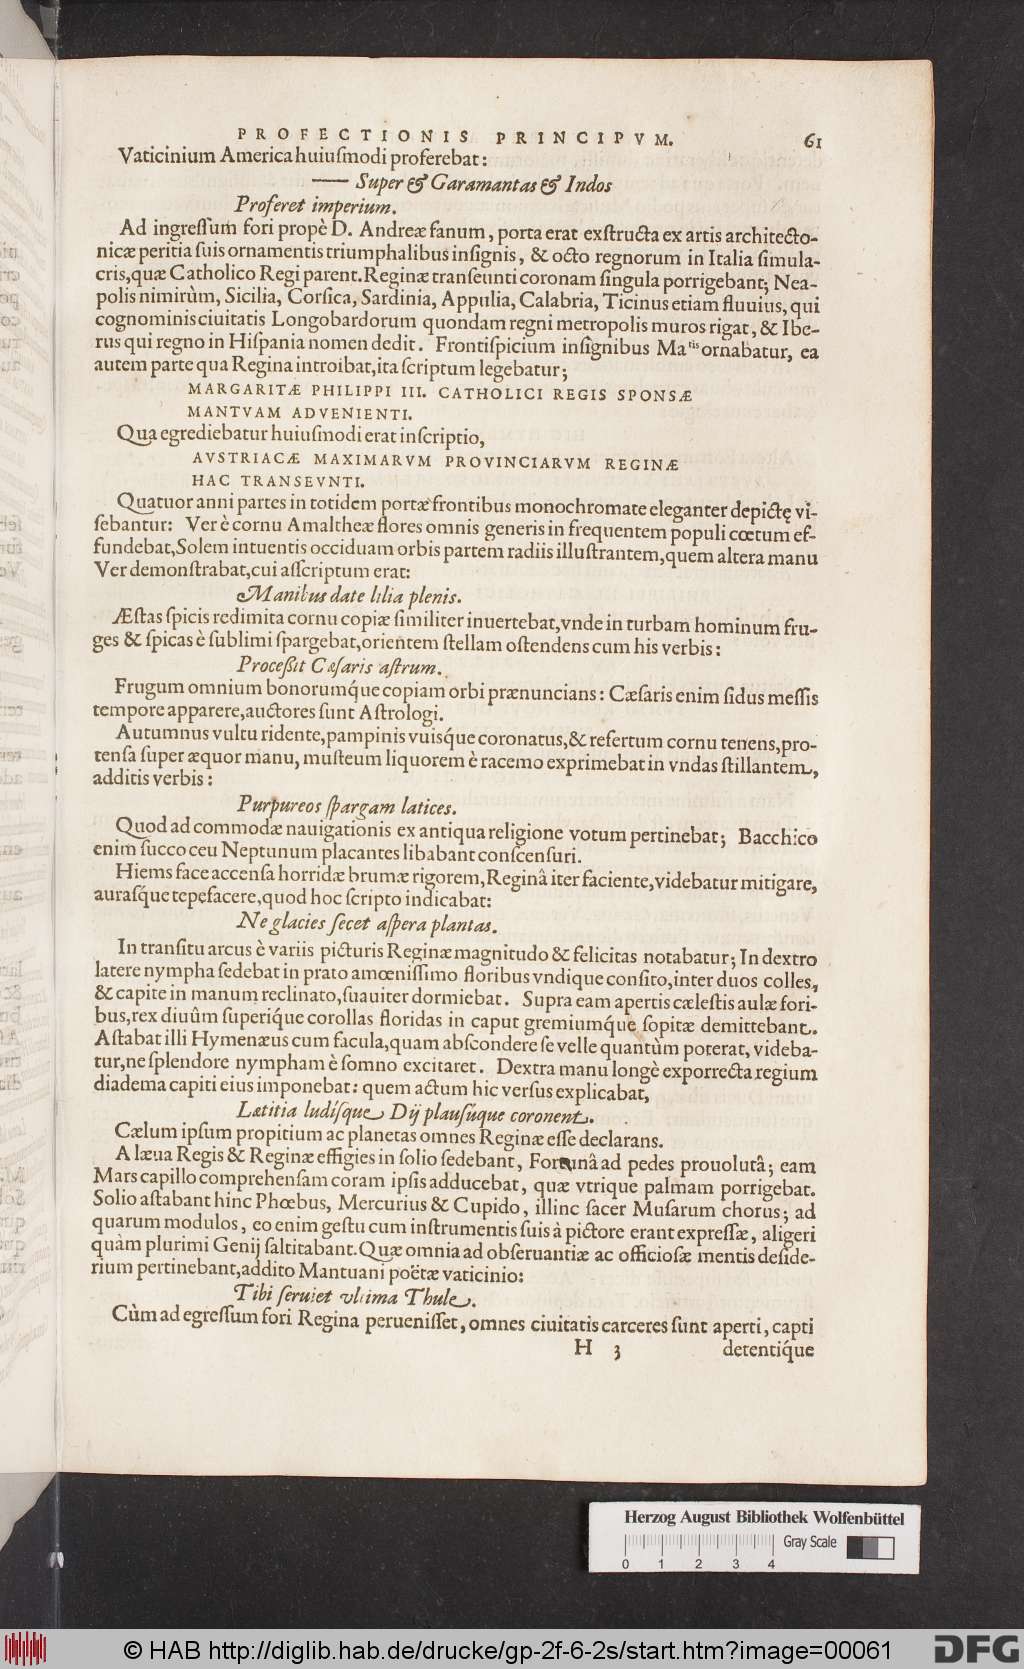 PROFECTIONIS PRINCIPVM. 61
Vaticinium America huiuſmodi proferebat:
—— Super & Garamantas & Indos
Proferet imperium.
Ad ingreſſum fori propè D. Andreæ fanum, porta erat exſtructa ex artis architecto-
nicæ peritia ſuis ornamentis triumphalibus inſignis, & octo regnorum in Italia ſimula-
cris, quæ Catholico Regi parent. Reginæ tranſeunti coronam ſingula porrigebant; Nea-
polis nimirùm, Sicilia, Corſica, Sardinia, Appulia, Calabria, Ticinus etiam fluuius, qui
cognominis ciuitatis Longobardorum quondam regni metropolis muros rigat, & Ibe-
rus qui regno in Hiſpania nomen dedit. Frontiſpicium inſignibus Ma^tis ornabatur, ea
autem parte qua Regina introibat, ita ſcriptum legebatur;
MARGARITÆ PHILIPPI III. CATHOLICI REGIS SPONSÆ
MANTVAM ADVENIENTI.
Qua egrediebatur huiuſmodi erat inſcriptio,
AVSTRIACÆ MAXIMARVM PROVINCIARVM REGINÆ
HAC TRANSEVNTI.
Quatuor anni partes in totidem portæ frontibus monochromate eleganter depictę vi-
ſebantur: Ver è cornu Amaltheæ flores omnis generis in frequentem populi cœtum ef-
fundebat, Solem intuentis occiduam orbis partem radiis illuſtrantem, quem altera manu
Ver demonſtrabat, cui aſſcriptum erat:
Manibus date lilia plenis.
Æſtas ſpicis redimita cornu copiæ ſimiliter inuertebat, vnde in turbam hominum fru-
ges & ſpicas è ſublimi ſpargebat, orientem ſtellam oſtendens cum his verbis:
Proceßit Cæſaris aſtrum.
Frugum omnium bonorumq́ue copiam orbi prænuncians: Cæſaris enim ſidus meſſis
tempore apparere, auctores ſunt Aſtrologi.
Autumnus vultu ridente, pampinis vuisq́ue coronatus, & refertum cornu tenens, pro-
tenſa ſuper æquor manu, muſteum liquorem è racemo exprimebat in vndas ſtillantem,
additis verbis:
Purpureos ſpargam latices.
Quod ad commodæ nauigationis ex antiqua religione votum pertinebat; Bacchico
enim ſucco ceu Neptunum placantes libabant conſcenſuri.
Hiems face accenſa horridæ brumæ rigorem, Reginâ iter faciente, videbatur mitigare,
auraſq́ue tepefacere, quod hoc ſcripto indicabat:
Ne glacies ſecet aſpera plantas.
In tranſitu arcus è variis picturis Reginæ magnitudo & felicitas notabatur; In dextro
latere nympha ſedebat in prato amœniſſimo floribus vndique conſito, inter duos colles,
& capite in manum reclinato, ſuauiter dormiebat. Supra eam apertis cæleſtis aulæ fori-
bus, rex diuûm ſuperiq́ue corollas floridas in caput gremiumq́ue ſopitæ demittebant.
Aſtabat illi Hymenæus cum facula, quam abſcondere ſe velle quantùm poterat, videba-
tur, ne ſplendore nympham è ſomno excitaret. Dextra manu longè exporrecta regium
diadema capiti eius imponebat: quem actum hic verſus explicabat,
Lætitia ludiſque Dij plauſúque coronent.
Cælum ipſum propitium ac planetas omnes Reginæ eſſe declarans.
A læua Regis & Reginæ effigies in ſolio ſedebant, Fortunâ ad pedes prouolutâ; eam
Mars capillo comprehenſam coram ipſis adducebat, quæ vtrique palmam porrigebat.
Solio aſtabant hinc Phœbus, Mercurius & Cupido, illinc ſacer Muſarum chorus; ad
quarum modulos, eo enim geſtu cum inſtrumentis ſuis à pictore erant expreſſæ, aligeri
quàm plurimi Genij ſaltitabant. Quæ omnia ad obſeruantiæ ac officioſæ mentis deſide-
rium pertinebant, addito Mantuani poëtæ vaticinio:
Tibi ſeruiet vltima Thule.
Cùm ad egreſſum fori Regina perueniſſet, omnes ciuitatis carceres ſunt aperti, capti
H 3 detentiq́ue
Herzog August Bibliothek Wolfenbüttel
Gray Scale
0 1 2 3 4
© HAB http://diglib.hab.de/drucke/gp-2f-6-2s/start.htm?image=00061
DFG